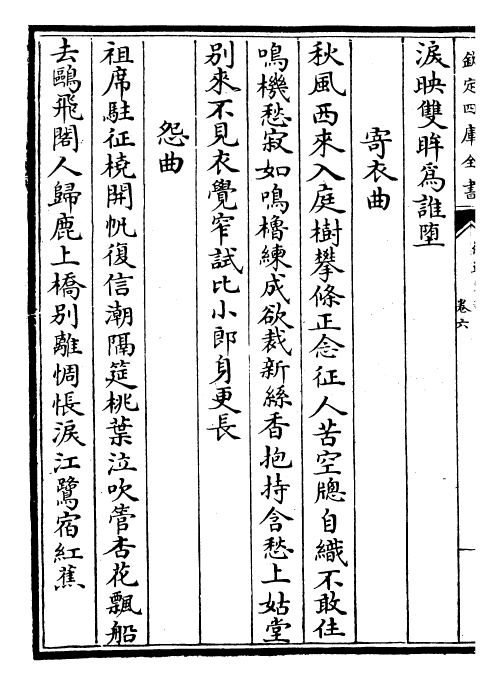 欽定四庫全書
卷六
淚映雙眸為誰墮
寄衣曲
秋風西來入庭樹攀條正念征人苦空牕自織不敢住
鳴機愁寂如鳴櫓練成欲裁新絲香抱持含愁上姑堂
別來不見衣覺窄試比小郎身更長
怨曲
祖席駐征橈開帆復信潮隔筵桃葉泣吹管杏花飄船
去鷗飛閣人歸鹿上橋別離惆悵淚江鷺宿紅蕉